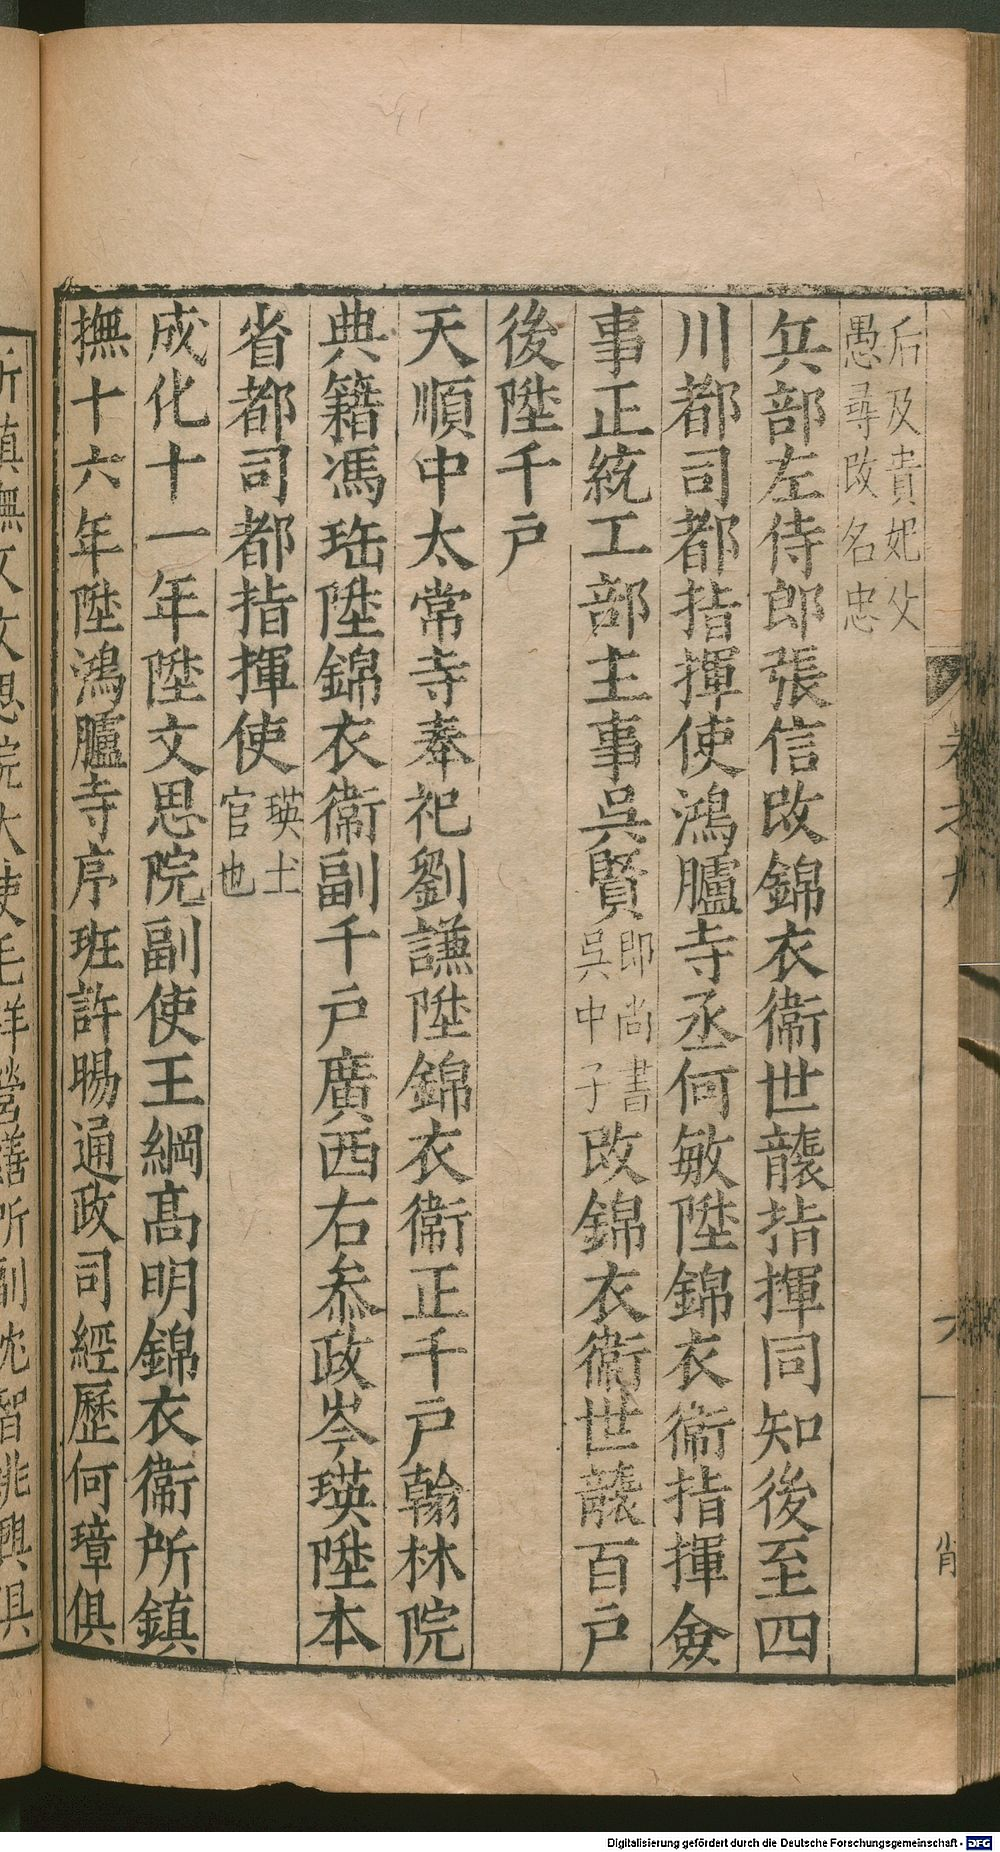 后及貴妃父
愚尋改名忠
兵部左侍郎張信改錦衣衞世襲指揮同知後至四
川都司都指揮使鴻臚寺丞何敏陞錦衣衞指揮僉
事正統工部主事吳賢即尚書吳中子改錦衣衞世襲百戶
後陞千戶
天順中太常寺奉祀劉謙陞錦衣衞正千戶翰林院
典籍馮珤陞錦衣衞副千戶廣西右叅政岑瑛陞本
省都司都指揮使瑛土官也
成化十一年陞文思院副使王綱高明錦衣衞所鎮
撫十六年陞鴻臚寺序班許暘通政司經歷何璋俱
所鎮撫又文思院大使毛祥營繕所副沈智姚興俱
Digitalisierung gefördert durch die Deutsche Forschungsgemeinschaft - DFG